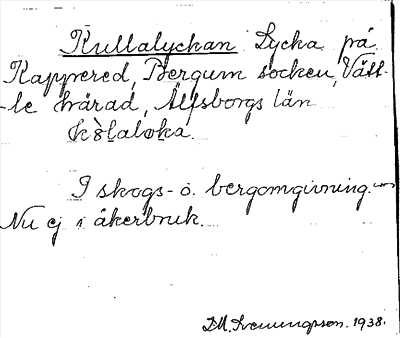 Kullalyckan Lycka på
Rappered, Bergum socken, Vätt-
-le härad, Älfsborgs län

I skogs- o. bergomgivning.
Nu ej i åkerbruk.
1938.